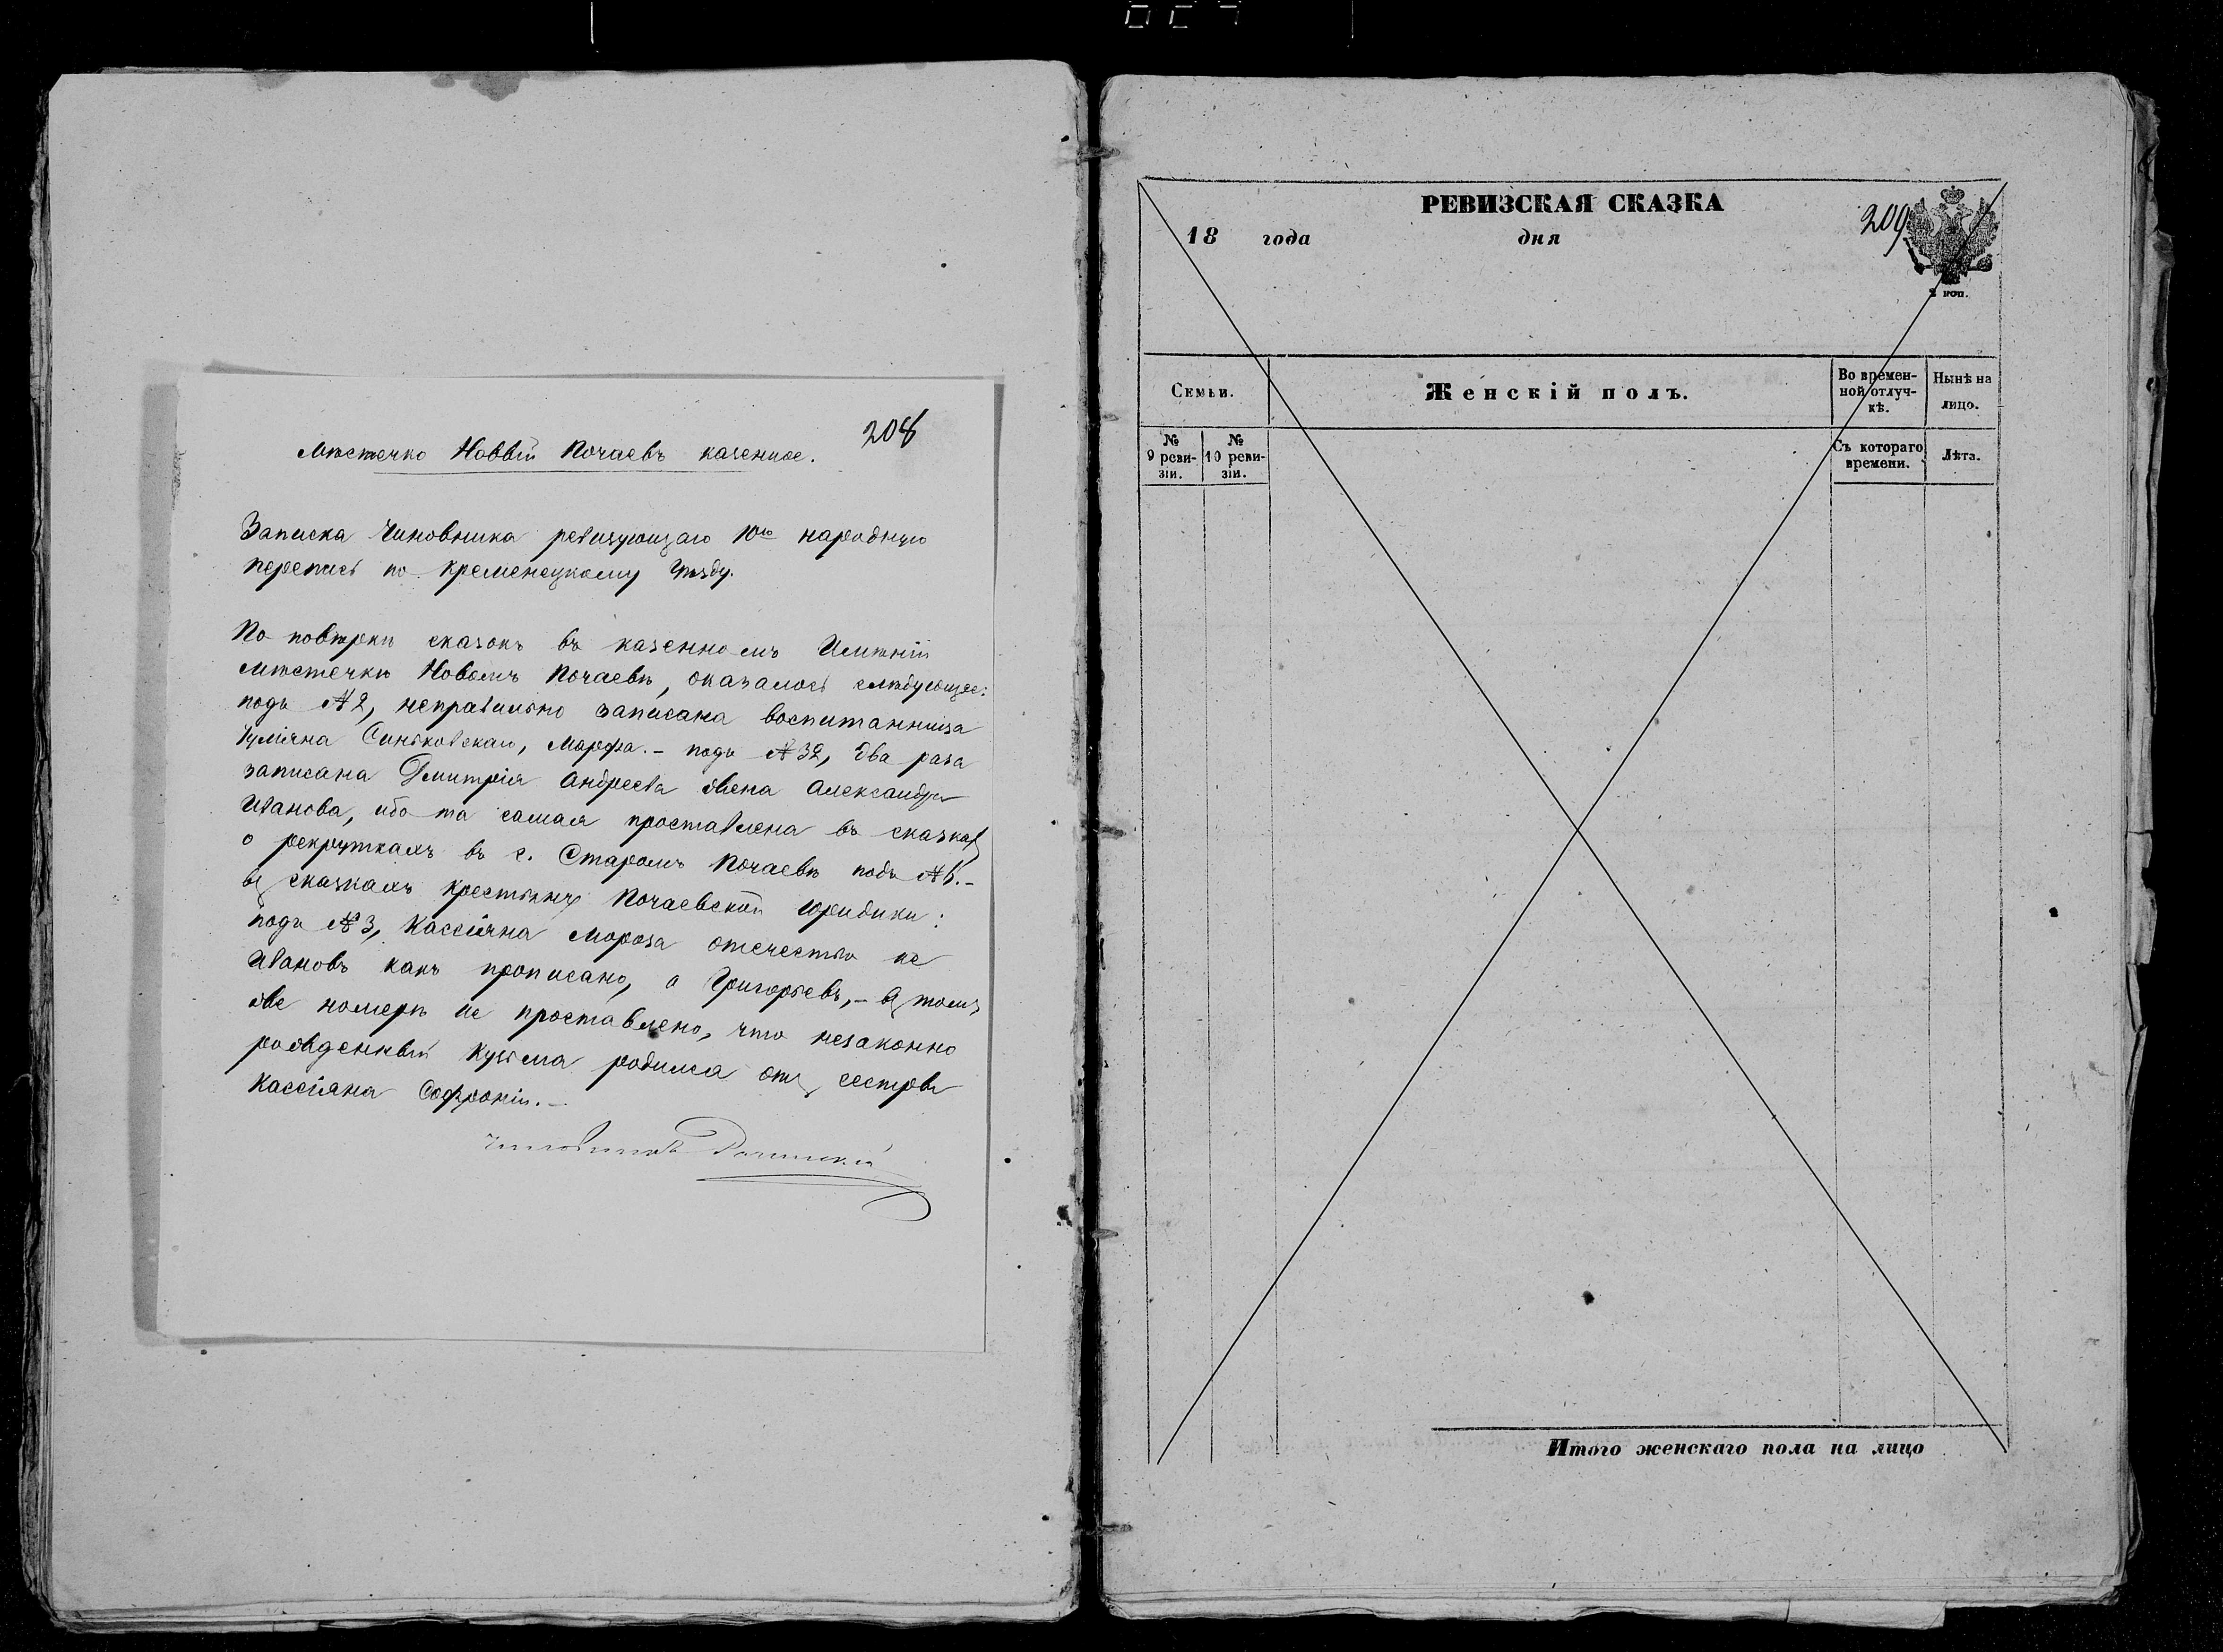 208
Мѣстечко Новый Почаевъ казенное.
Записка Чиновника ревизующаго 10ю народную
перепись по Кременецкому Уѣзду.
По повѣркѣ сказокъ въ казенномъ Имѣніи
мѣстечкѣ Новомъ Почаевѣ, оказалось слѣдующее:
подъ №2, неправильно записана воспитанница
Юліяна Синьковскаго, Марфа. - подъ №32, два раза
записана Дмитрія Андреева жена Александра
Иванова, ибо та самая проставлена въ сказкахъ
о рекруткахъ въ с. Старомъ Почаевѣ подъ №6. -
въ сказкахъ крестьянъ Почаевской юридики:
подъ №3, Кассіяна Мороза отечество не
Ивановъ какъ прописано, а Григорьевъ, - въ томъ
же номерѣ не проставлено, что незаконно
рожденный Кузьма родился отъ сестры
Кассіяна Софроніи. -
Чиновникъ
РЕВИЗСКАЯ СКАЗКА
209
18 года дня
2 коп.
Семьи.
Женскій полъ.
Во времен-
ной отлуч-
кѣ.
Нынѣ на
лицо.
№
9 реви-
зіи.
№
10 реви-
зіи.
Съ котораго
времени.
Лѣта.
Итого женскаго пола на лицо